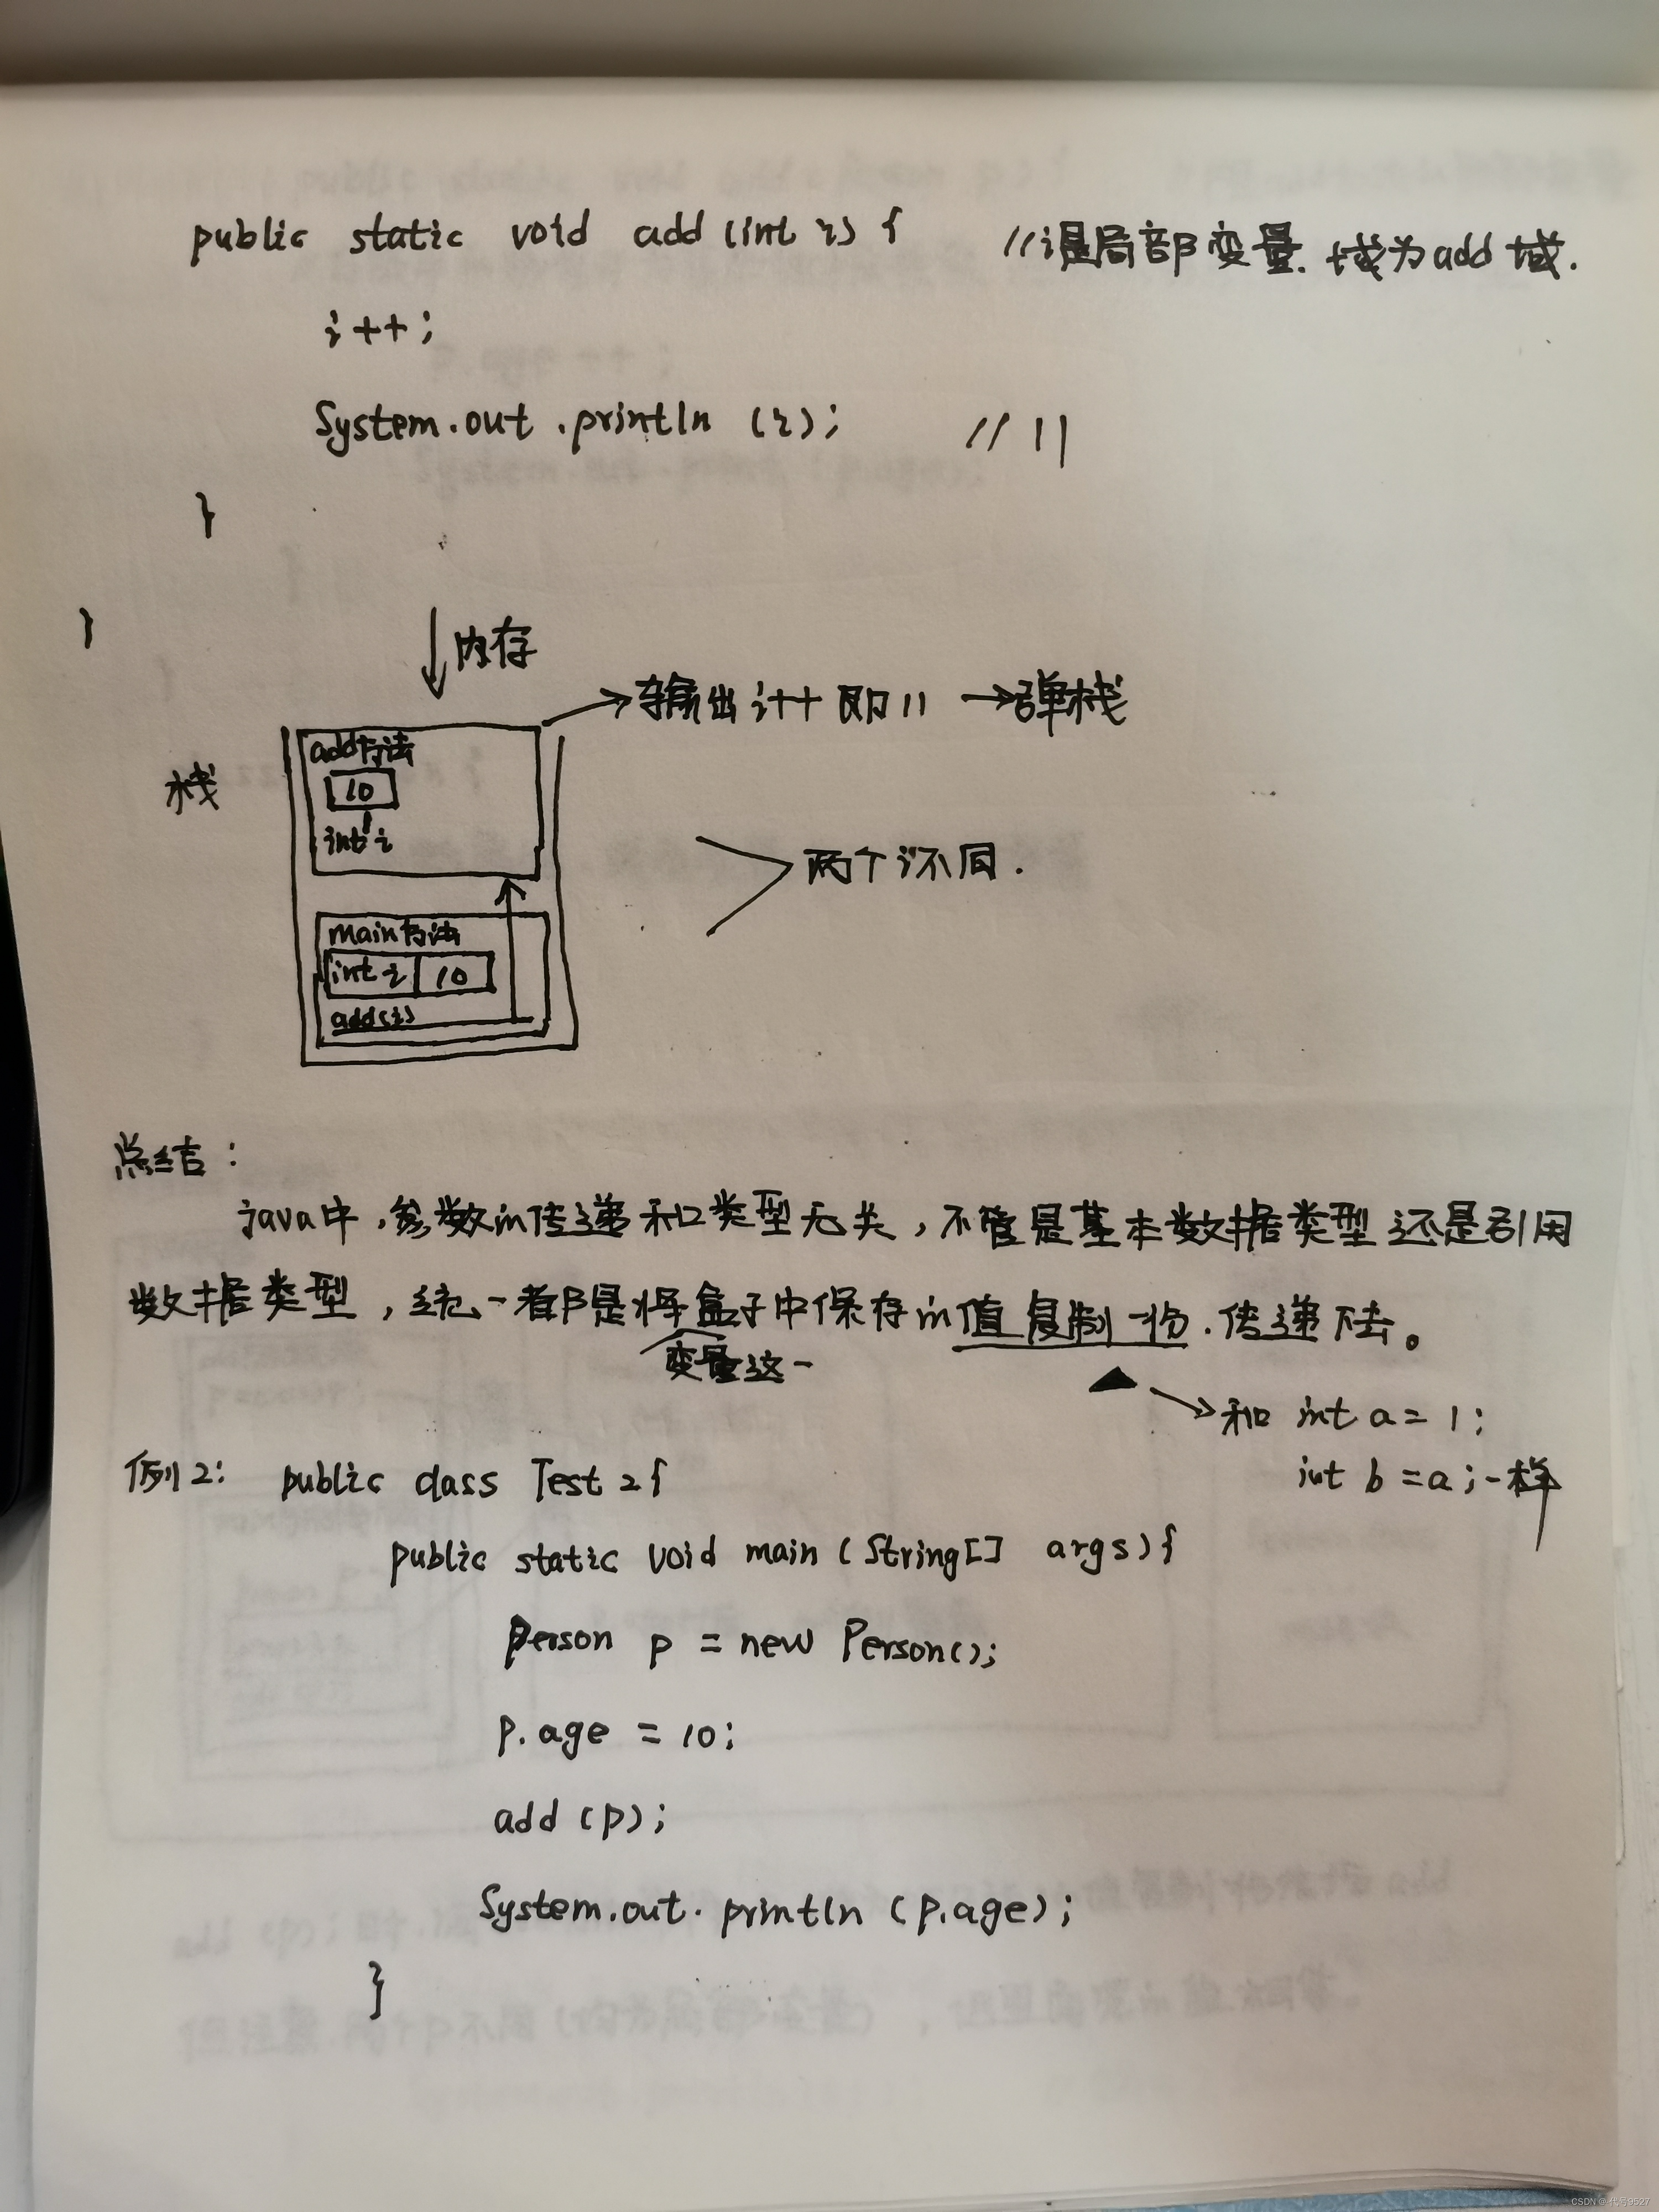 public static void add (int i) { //i是局部变量. 域为add域.
i++;
System.out.println (i); // 11
}
}
↓内存
→输出i++ 即11 →弹栈
栈
add方法
10
int i
两个i不同.
main方法
int i 10
add(i)
总结:
java中,参数的传递和类型无关,不管是基本数据类型还是引用
数据类型,统一都是将盒子中保存的值复制一份.传递下去。
变量这一
▲→和 int a = 1;
int b = a;一样
例2: public class Test2{
public static void main (String[] args){
Person p = new Person();
p.age = 10;
add (p);
System.out.println (p.age);
}
CSDN @代号9527